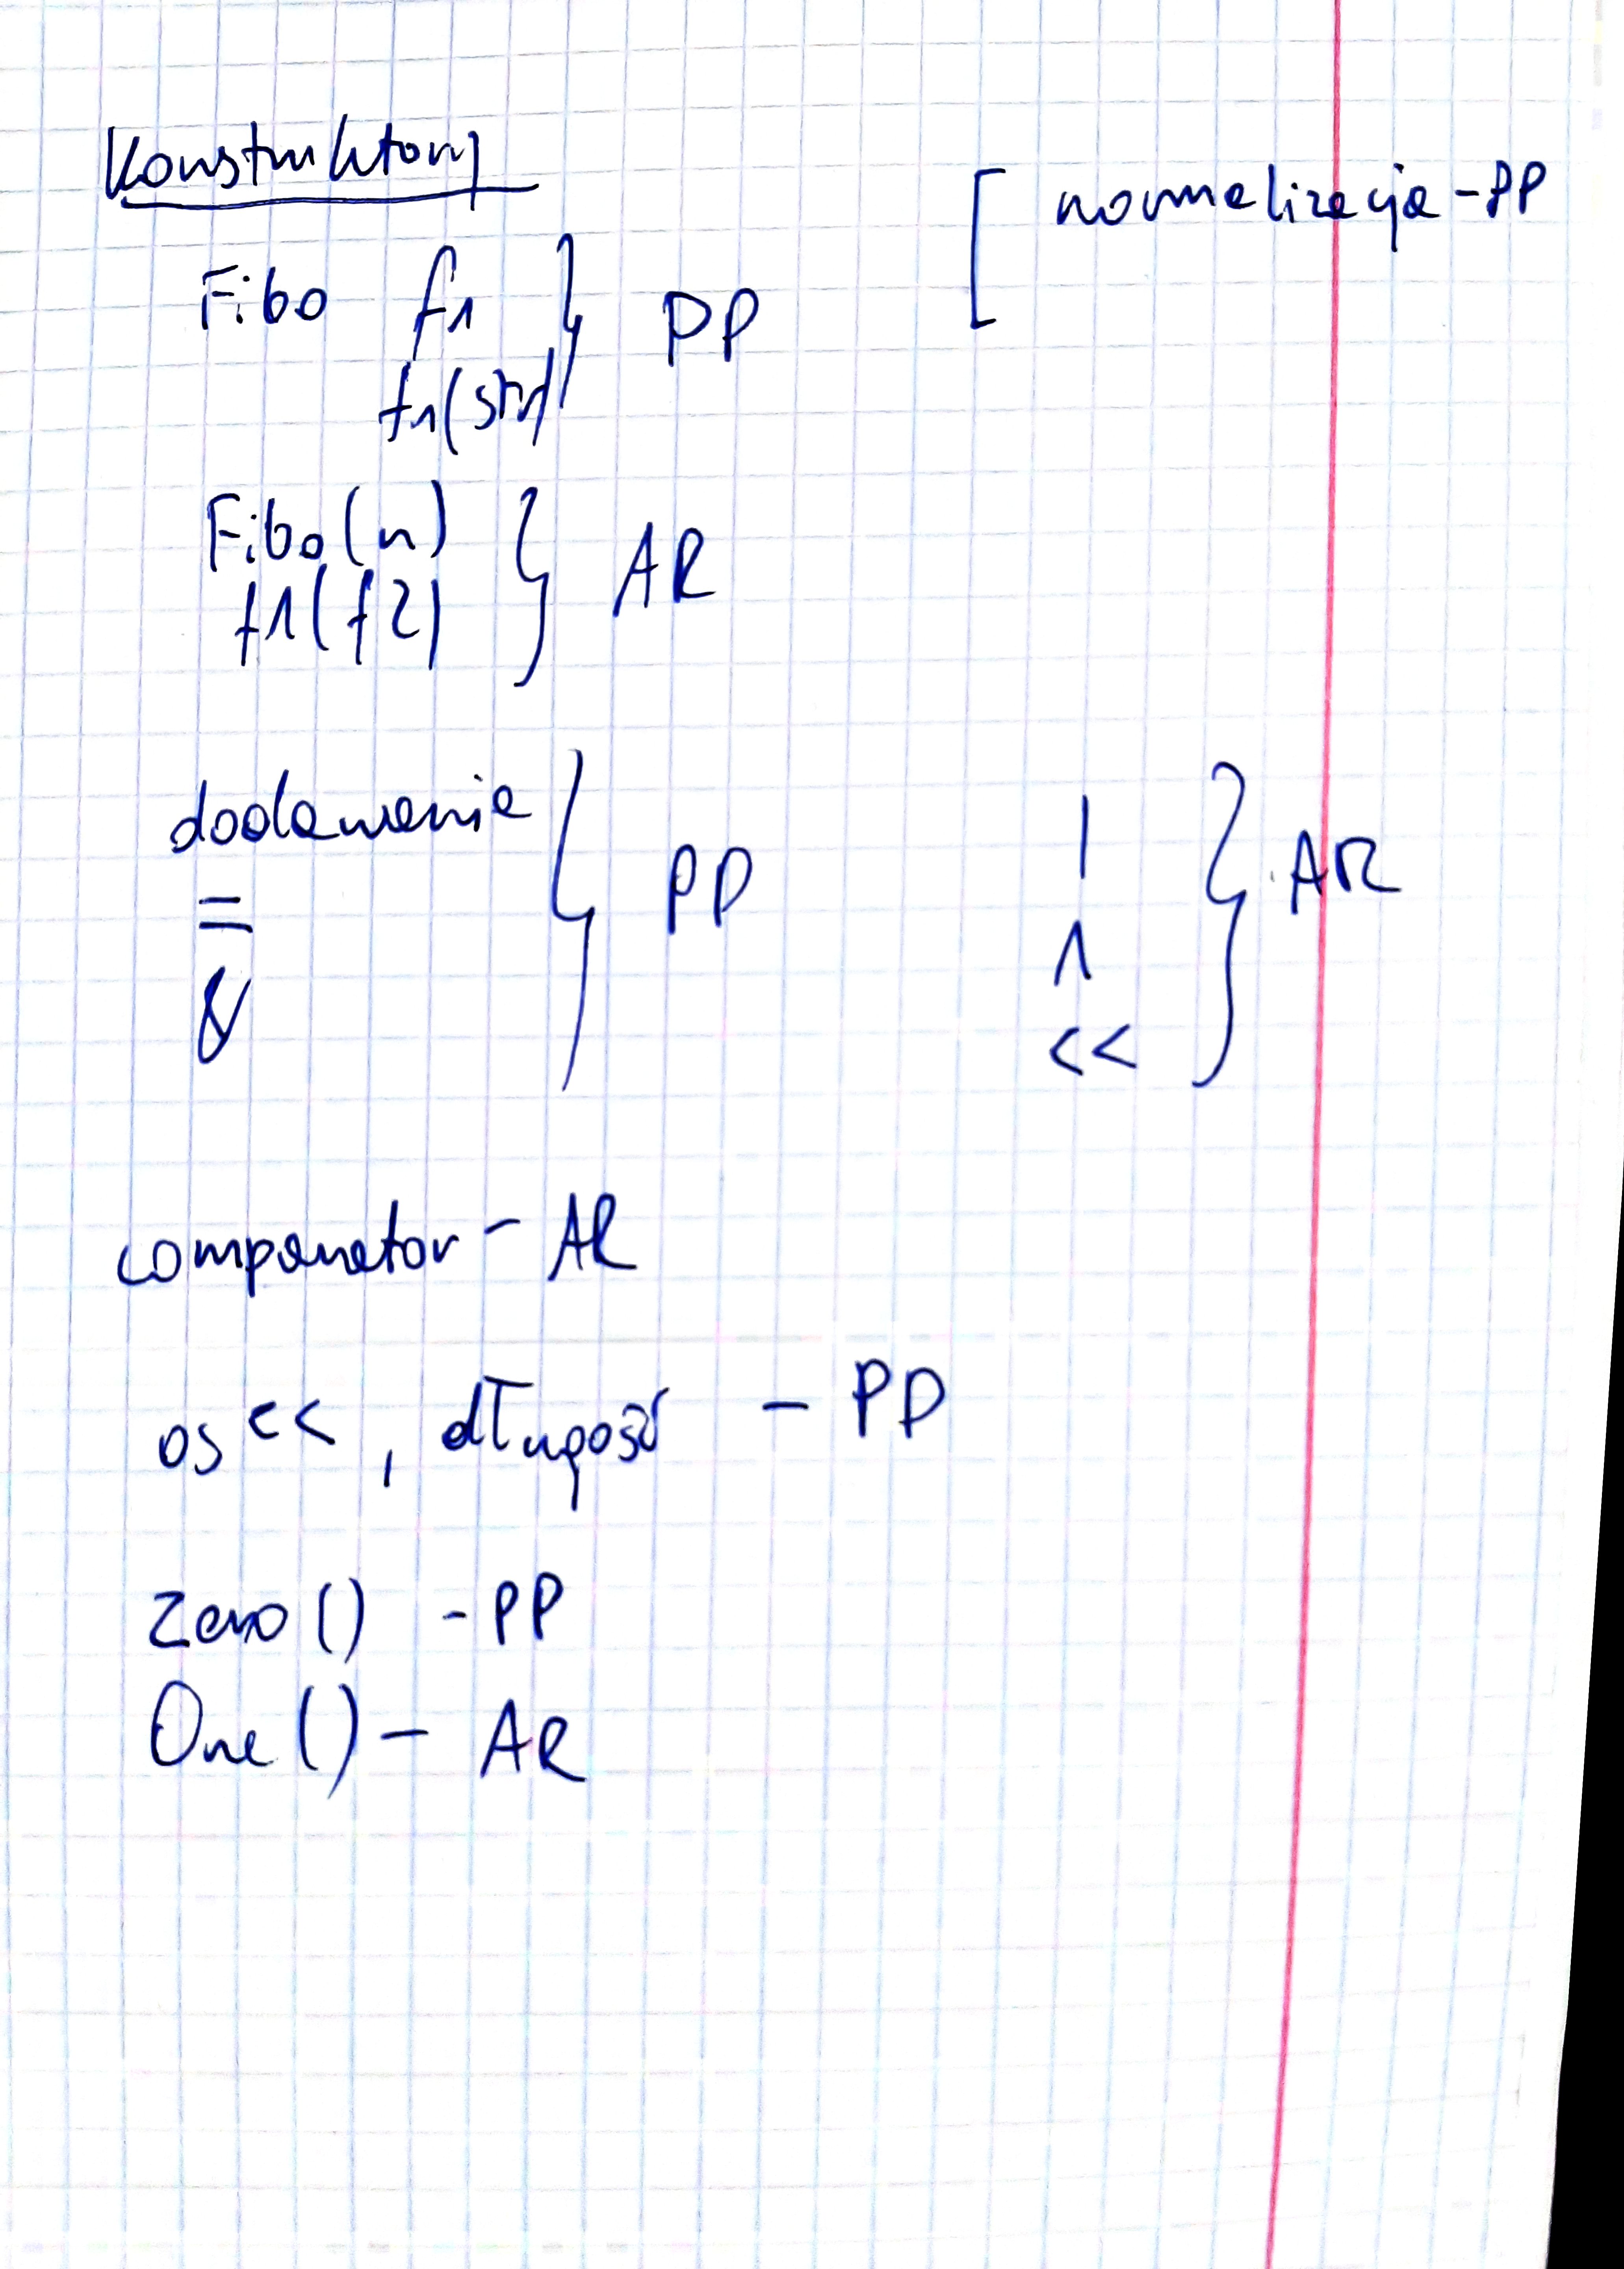 Konstruktory
[ normalizacja - PP
Fibo f1 } PP
f1(str)
Fibo(n) } AR
f1(f2)
dodawanie } PP
=
&
| } AR
^
<<
comparator - AR
os <<, długość - PP
Zero() - PP
One() - AR